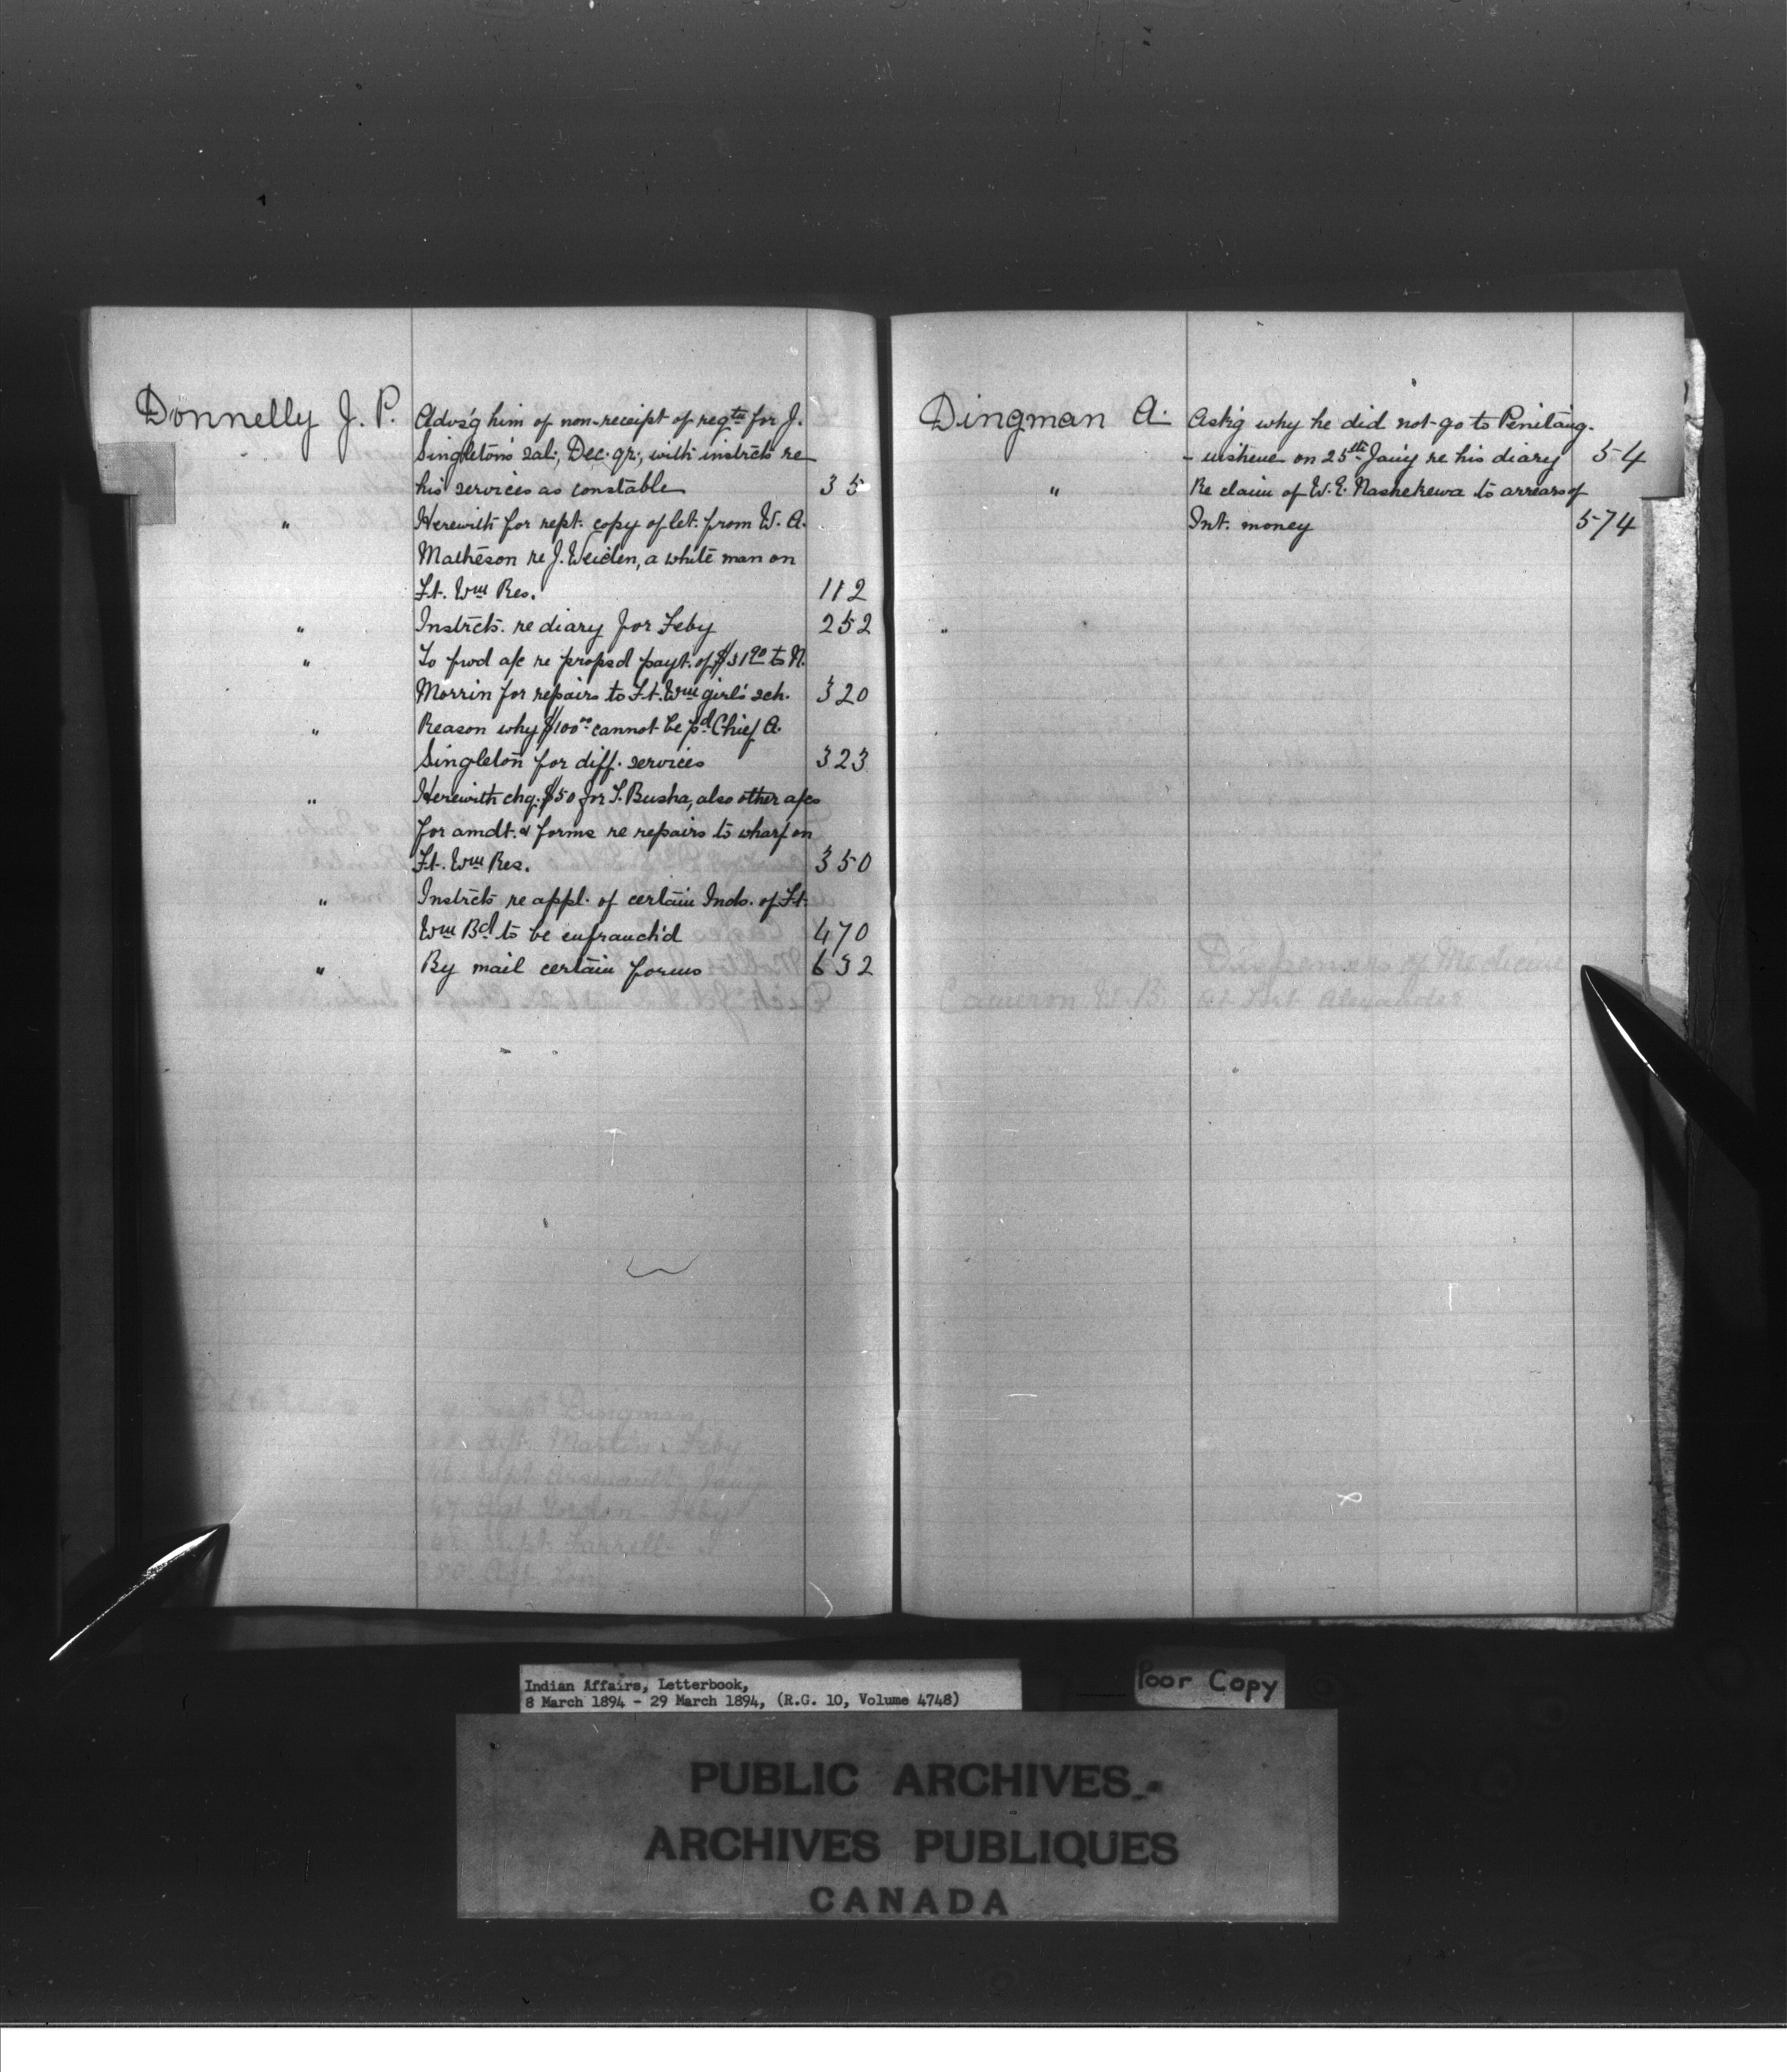 Donnelly J. P. Advs'g him of non-receipt of reqts for J.
Singleton's sal:, Dec. qr:, with instrcts re
his services as constable 35
" Herewith for rept. copy of let. from W. A.
Matheson re J. Weiden, a white man on
Ft. Wm Res. 112
" Instrcts. re diary for Feby 252
" To fwd a/c re propsd payt. of $31.90 to N.
Morrin for repairs to Ft. Wm girl's sch. 320
" Reason why $100.00 cannot be pd Chief A.
Singleton for diff. services 323
" Herewith chq. $50 for T. Busha, also other a/cs
for amdt. & forms re repairs to wharf on
Ft. Wm Res. 350
" Instrcts re appl. of certain Inds. of Ft.
Wm Bd to be enfranch'd 470
" By mail certain forms 632
Dingman,
Agt. Martin Feby
Agt. Gordon Feby
Supt. Farrell
Dingman A. Ask'g why he did not go to Penetang-
-uishene on 25th Jan'y re his diary 54
" Re claim of W. E. Nashekewa to arrears of
Int. money 574
"
Dispensers of Medicine
Cameron W. B. at Fort Alexander
Indian Affairs, Letterbook,
8 March 1894 - 29 March 1894, (R.G. 10, Volume 4748)
Poor Copy
PUBLIC ARCHIVES
ARCHIVES PUBLIQUES
CANADA